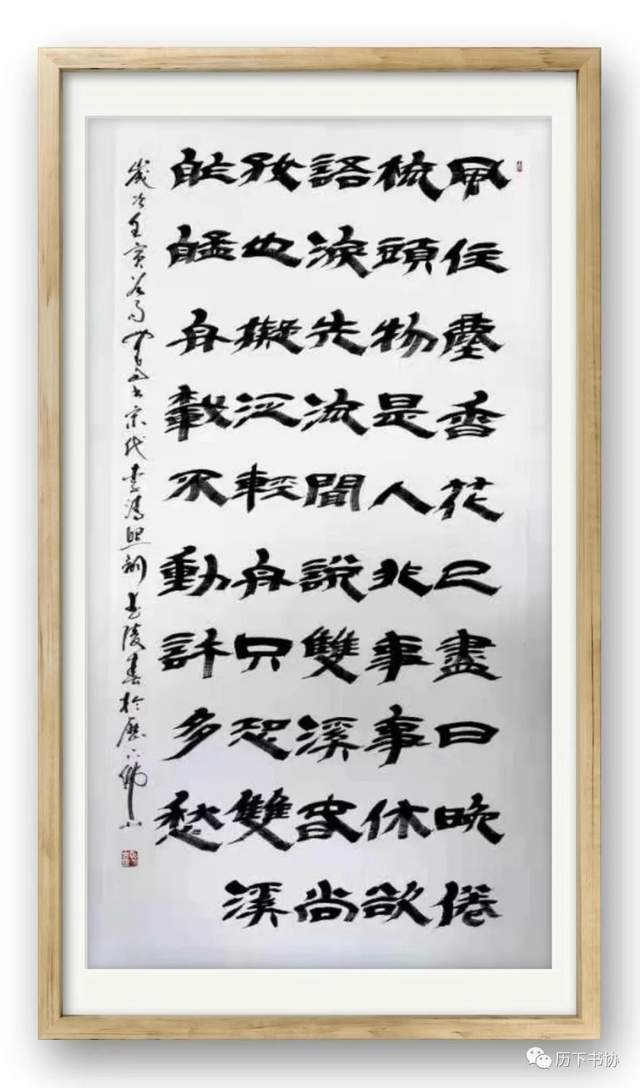 風住塵香花已盡日晚倦
梳頭物是人非事事休欲
語淚先流聞說雙溪春尚
好也擬泛輕舟只恐雙溪
舴艋舟載不動許多愁
歲次壬寅谷雨書宋代李清照詞武陵春於歷下佛山
历下书协